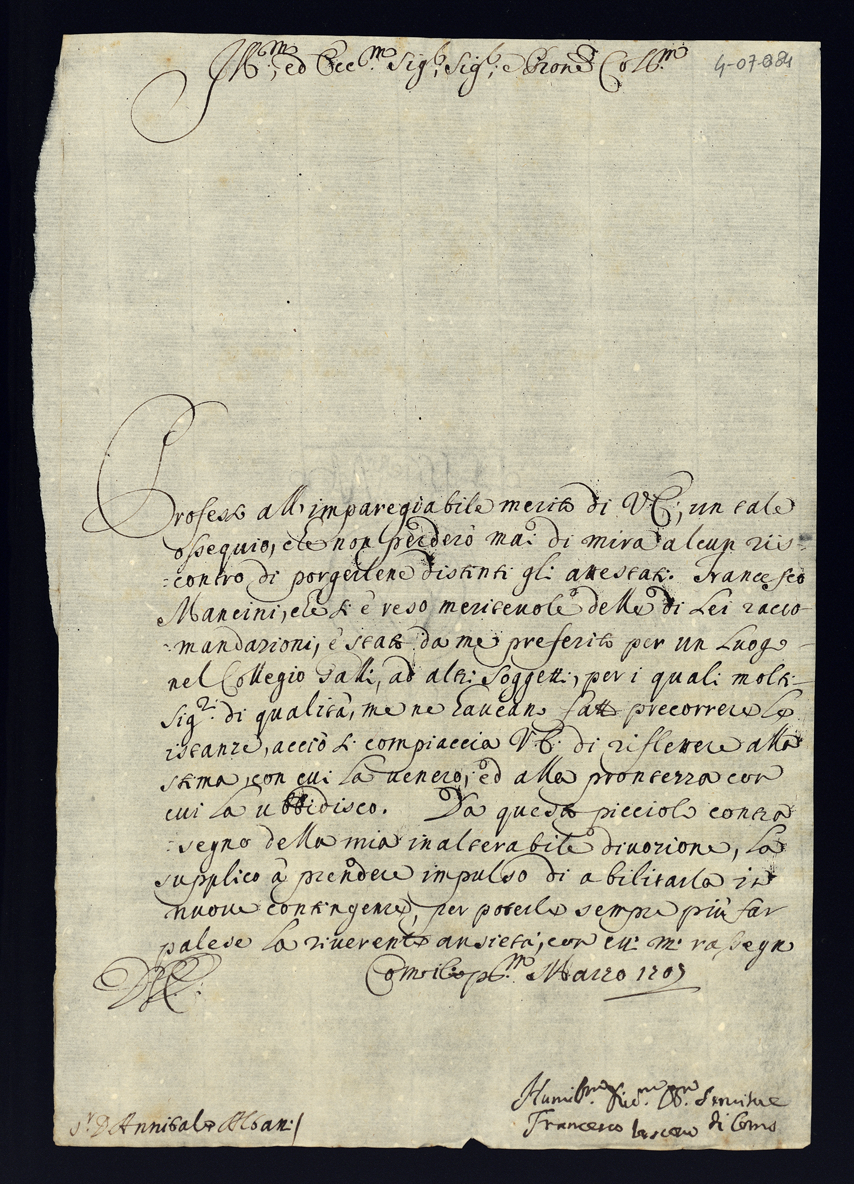 Ill.mo, ed Ecc.mo Sig.r, Sig.r, e Pron.e Coll.mo
4-07-084
Professo all'impareggiabile merito di V.E., un tale
ossequio, che non perderò mai di mira alcun ris-
contro di porgerlene distinti gli attestati. Francesco
Mancini, che si è reso meritevole delle di Lei racco-
mandazioni, è stato da me preferito per un Luogo
nel Collegio Galli, ad altri Soggetti, per i quali molti
Sig.ri di qualità, me ne haveano fatto precorrere le
istanze, acciò si compiaccia V.E. di riflettere alla
stima, con cui La venero, ed alla prontezza con
cui La ubbidisco. Da questo picciolo contra
segno della mia inalterabile divozione, La
supplico à prendere impulso di abilitarla in
nuove contingenze, per poterle sempre più far
palese la riverente ansietà, con cui mi rassegno
Como li p.mo Marzo 1705
S.r D Annibale Albani
Humil.mo Servitore
Francesco Vescovo di Como